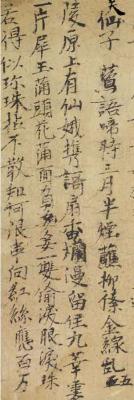 天仙子 鷰語啼時三月半煙蘸柳條金線亂五
陵原上有仙娥携謌扇香爛漫留住九華雲
一片犀玉滿頭花滿面負妾一雙偷淚眼淚珠
若得似珎珠拈不散知何限串向紅絲應百万